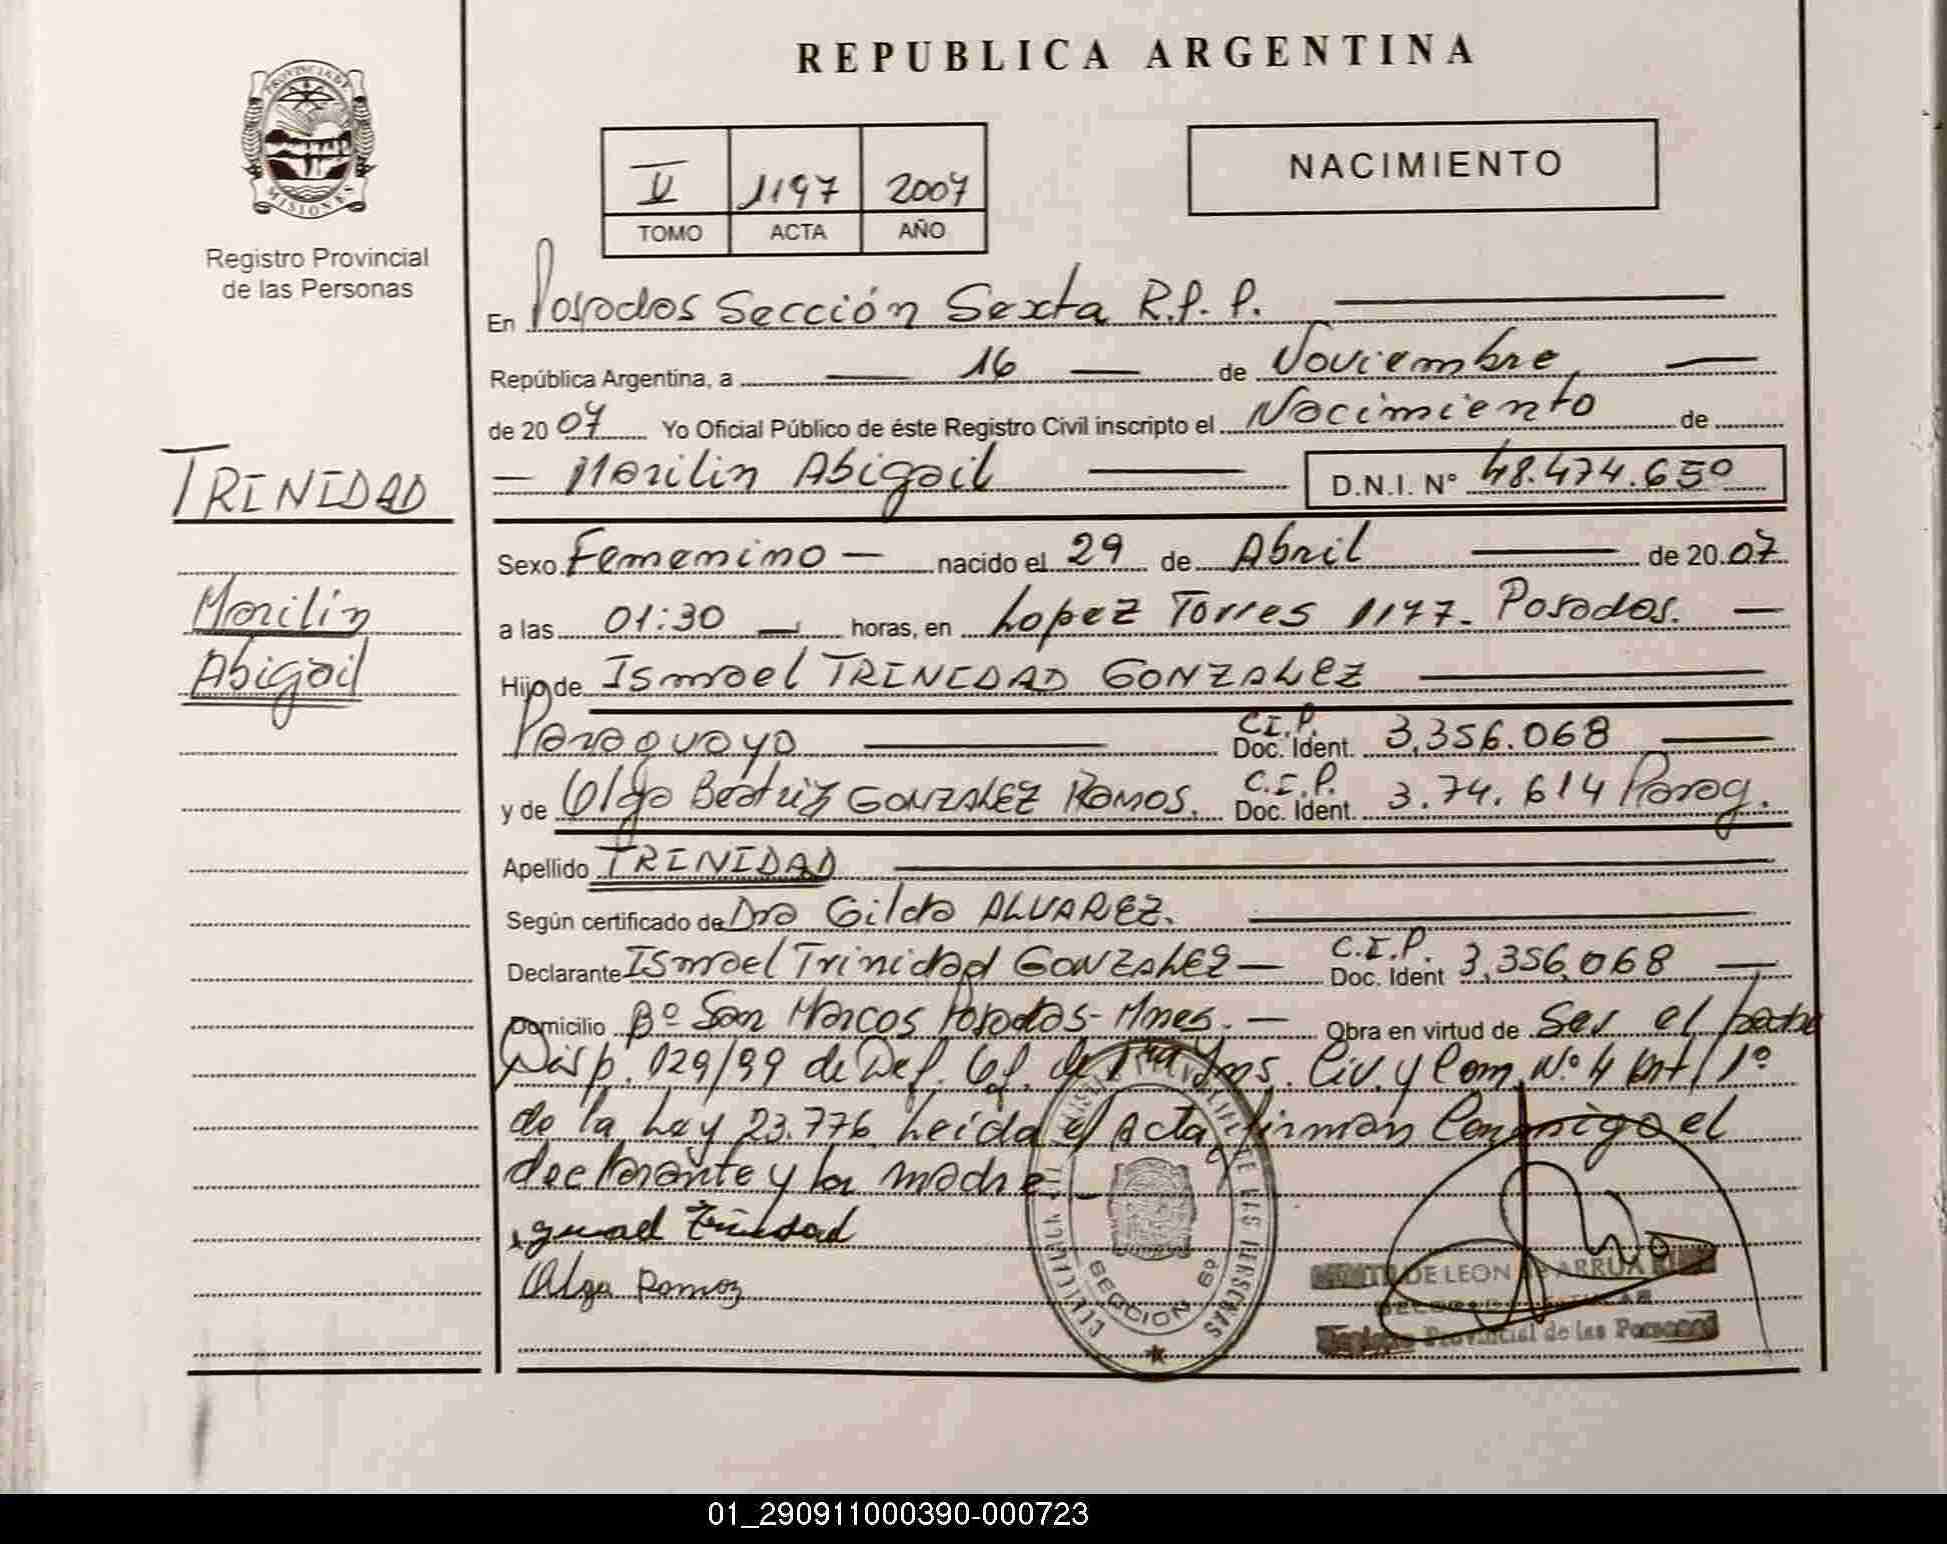 REPUBLICA ARGENTINA
PROVINCIA DE
MISIONES
Registro Provincial
de las Personas
NACIMIENTO
II 1197 2007
TOMO ACTA AÑO
En Posadas Sección Sexta R.P.P.
República Argentina, a 16 de Noviembre
de 20 07 Yo Oficial Público de éste Registro Civil inscripto el Nacimiento de
Marilin Abigail D.N.I. N° 48.474.650
TRINIDAD
Marilin
Abigail
Sexo Femenino nacido el 29 de Abril de 20 07
a las 01:30 horas, en Lopez Torres 1177. Posadas.
Hijo de Ismael TRINIDAD GONZALEZ
Paraguayo C.I.P. Doc. Ident. 3.356.068
y de Olga Beatriz GONZALEZ RAMOS. C.I.P. Doc. Ident. 3.74.614 Parag.
Apellido TRINIDAD
Según certificado de Dra Gilda ALVAREZ.
Declarante Ismael Trinidad GONZALEZ C.I.P. Doc. Ident 3.356.068
Domicilio B° San Marcos Posadas-Mnes. Obra en virtud de Ser el padre
Disp. 029/99 de Def. Of. de Ins. Civ. y Com. N° 4 Art/1°
de la Ley 23.776 Leida el Acta, firman Conmigo el
declarante y la madre.
Trinidad
Olga Ramoz
SECCION 6°
DE LEON DE ARRUA
Registro Provincial de las Personas
01_290911000390-000723